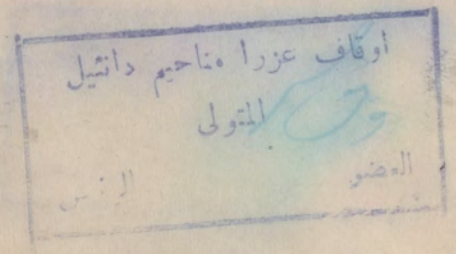 اوقاف عزرا مناحيم دانئيل
المتولى
العضو الرئيس